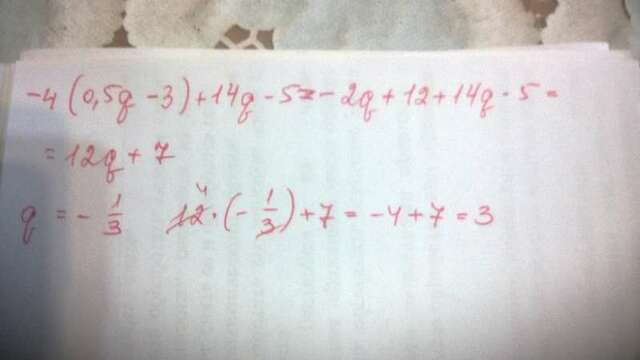 -4(0,5q -3)+14q - 5 = - 2q + 12 + 14q - 5 =
= 12q + 7
q = - 1/3 12 4 · (- 1/3) + 7 = -4 + 7 = 3